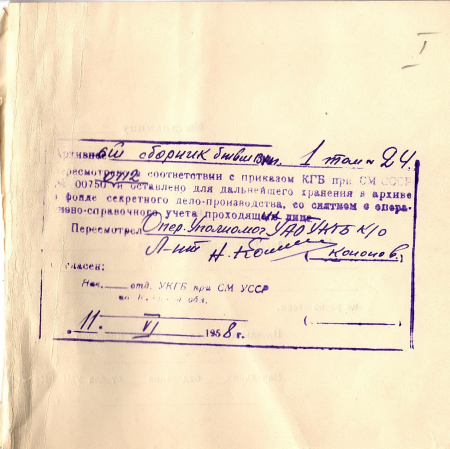 I
Архивное ый сборник бывш 1 том № 24
ОП2
пересмотрено в соответствии с приказом КГБ при СМ СССР
№ 00750 и оставлено для дальнейшего хранения в архиве
в фонде секретного дело-производства, со снятием с опера-
тивно-справочного учета проходящих лиц.
Пересмотрел Опер. Уполномог УАО УКГБ К/о
Л-нт (Кононов.)
Согласен:
Нач. отд. УКГБ при СМ УССР
по К обл.
" 11 " VI 1958 г. ( )